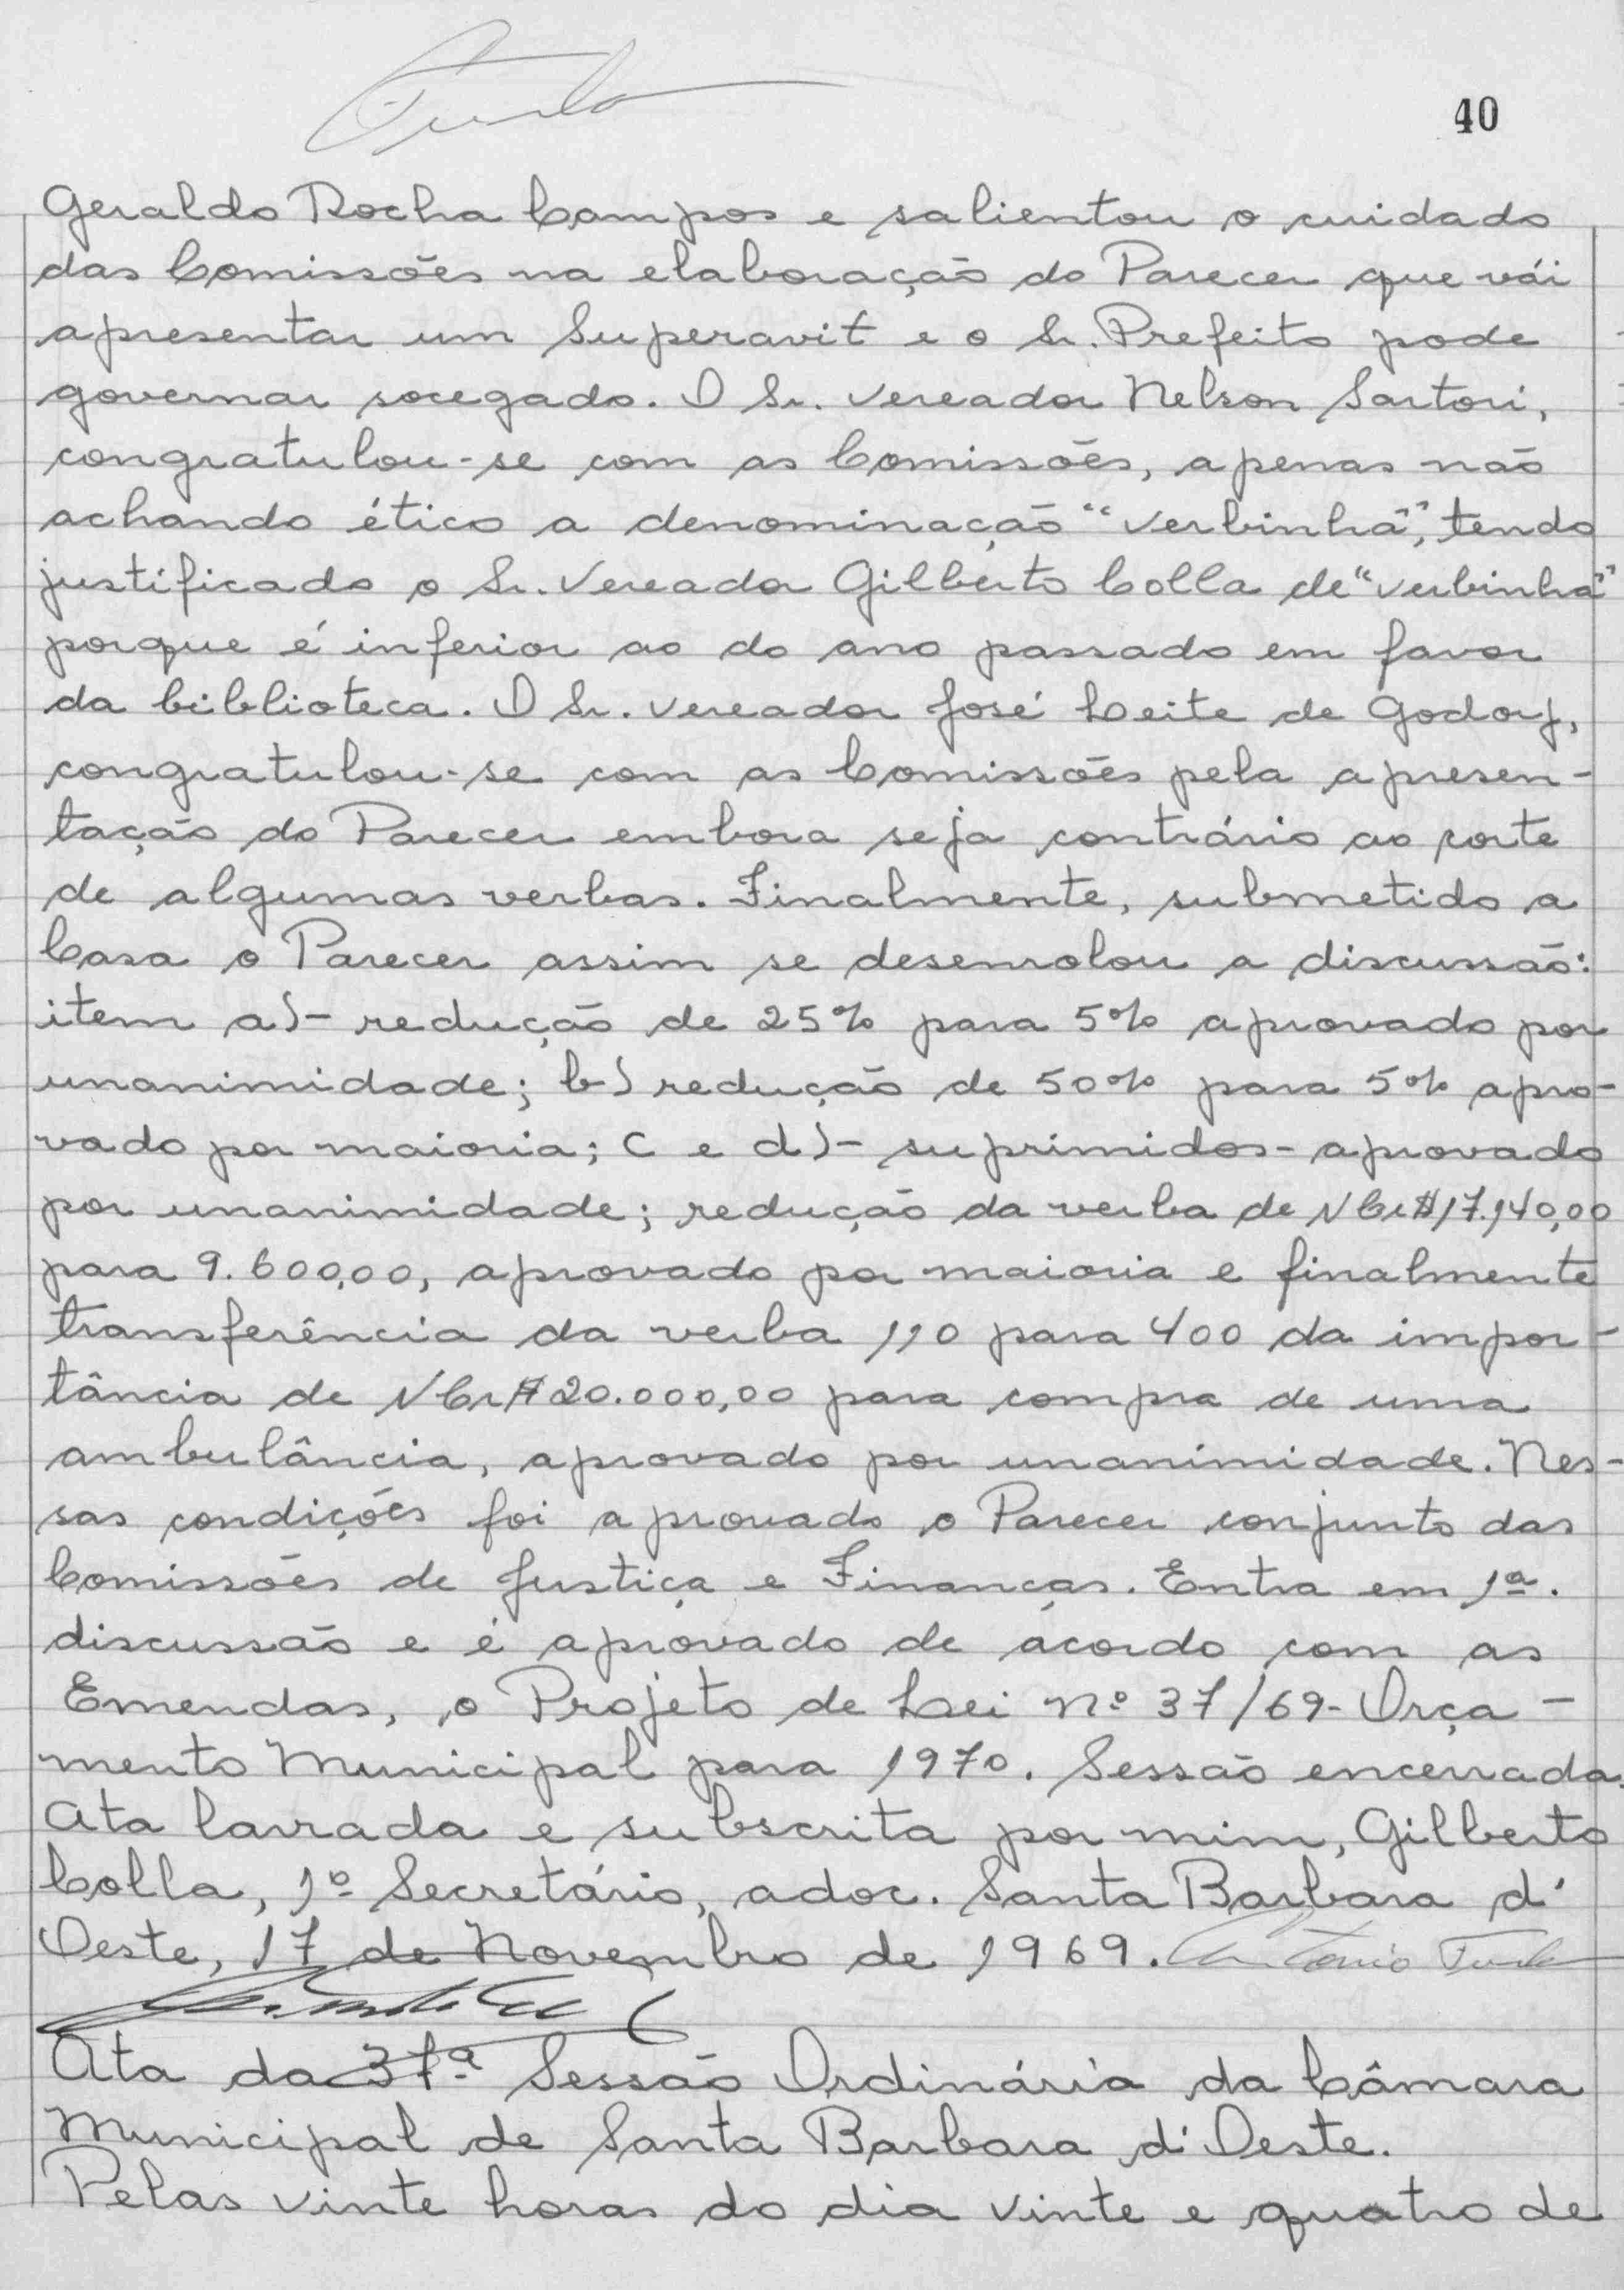 40
Geraldo Rocha Campos e salientou o cuidado
das Comissões na elaboração do Parecer que vái
apresentar um Superavit e o Sr. Prefeito pode
governar socegado. O Sr. Vereador Nelson Sartori,
congratulou-se com as Comissões, apenas não
achando ético a denominação "verbinha", tendo
justificado o Sr. Vereador Gilberto Colla de "verbinha"
porque é inferior ao do ano passado em favor
da biblioteca. O Sr. Vereador José Leite de Godoy,
congratulou-se com as Comissões pela apresen-
tação do Parecer embora seja contrário ao corte
de algumas verbas. Finalmente, submetido a
Casa o Parecer assim se desenrolou a discussão:
item a)- redução de 25% para 5% aprovado por
unanimidade; b) redução de 50% para 5% apro-
vado por maioria; C e d)- suprimidos - aprovado
por unanimidade; redução da verba de NCr$17.140,00
para 9.600,00, aprovado por maioria e finalmente
transferência da verba 110 para 400 da impor-
tância de NCr$20.000,00 para compra de uma
ambulância, aprovado por unanimidade. Nes-
sas condições foi aprovado o Parecer conjunto das
Comissões de Justiça e Finanças. Entra em 1ª.
discussão e é aprovado de acordo com as
Emendas, o Projeto de Lei nº 37/69 - Orça-
mento Municipal para 1970. Sessão encerrada.
Ata lavrada e subscrita por mim, Gilberto
Colla, 1º Secretário, adoc. Santa Barbara d'
Oeste, 17 de Novembro de 1969. Antonio
Ata da 37ª Sessão Ordinária da Câmara
Municipal de Santa Barbara d'Oeste.
Pelas vinte horas do dia vinte e quatro de